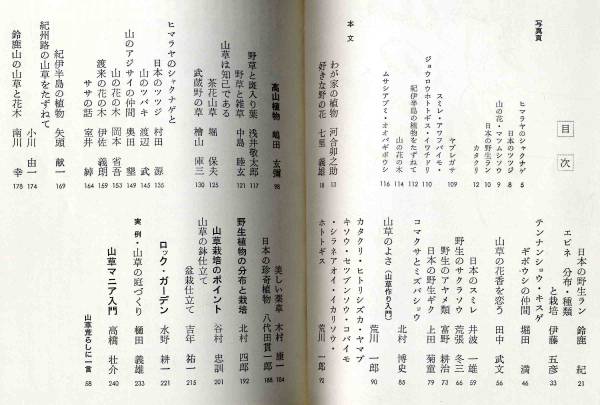 目次
写真頁
ヒマラヤのシャクナゲ 5
日本のツツジ 8
山の花・マツムシソウ 9
日本の野生ラン 10
カタクリ 12
ヤブレガサ 109
スミレ・アワフバイモ・
ジョウロウホトトギス・イワチドリ 110
紀伊半島の植物をたずねて 112
山の花木 114
ムサシアブミ・オオバギボウシ 116
本文
わが家の植物 河合卯之助 13
好きな野の花 七里義雄 18
日本の野生ラン 鈴鹿紀 21
エビネ 分布・種類
と栽培 伊藤五彦 33
テンナンショウ・キスゲ
ギボウシの仲間 堀田満 46
山草の花香を恋う 田中武文 56
日本のスミレ 井波一雄 59
野生のサクラソウ 荒張冬三 66
野生のアヤメ類 富野耕治 73
日本の野生ギク 上田菊童 79
コマクサとミズバショウ
北村博史 85
山草のよさ(山草作り入門)
荒川一郎 90
カタクリ・ヒトリシズカ・ヤマブ
キソウ・セツブンソウ・コバイモ
・シラネアオイ・イカリソウ・
ホトトギス 荒川一郎 92
高山植物 嶋田玄彌 98
野草と斑入り葉 浅井敬太郎 117
野草と雑草 中島睦玄 121
山草は知己である
茶花山草 堀保夫 125
武蔵野の草 檜山庫三 130
ヒマラヤのシャクナゲと
日本のツツジ 村田源 135
山のツバキ 渡辺武 145
山のアジサイの仲間 奥田墾 149
山の花の木 岡本省吾 153
渡来の花の木 伊佐義朗 159
ササの話 室井綽 164
紀伊半島の植物 矢頭献一 169
紀州路の山草をたずねて
小川由一 174
鈴鹿山の山草と花木 南川幸 178
美しい薬草 木村康一 184
日本の珍奇植物 八代田貫一郎 188
野生植物の分布と栽培
北村四郎 192
山草栽培のポイント
谷村忠訓 201
山草の鉢仕立て
盆栽仕立て 吉年祐一 215
ロック・ガーデン
水野耕一 221
実例・山草の庭づくり 樋田義雄 233
山草マニア入門 高橋壮介 240
山草荒らしに一言 58